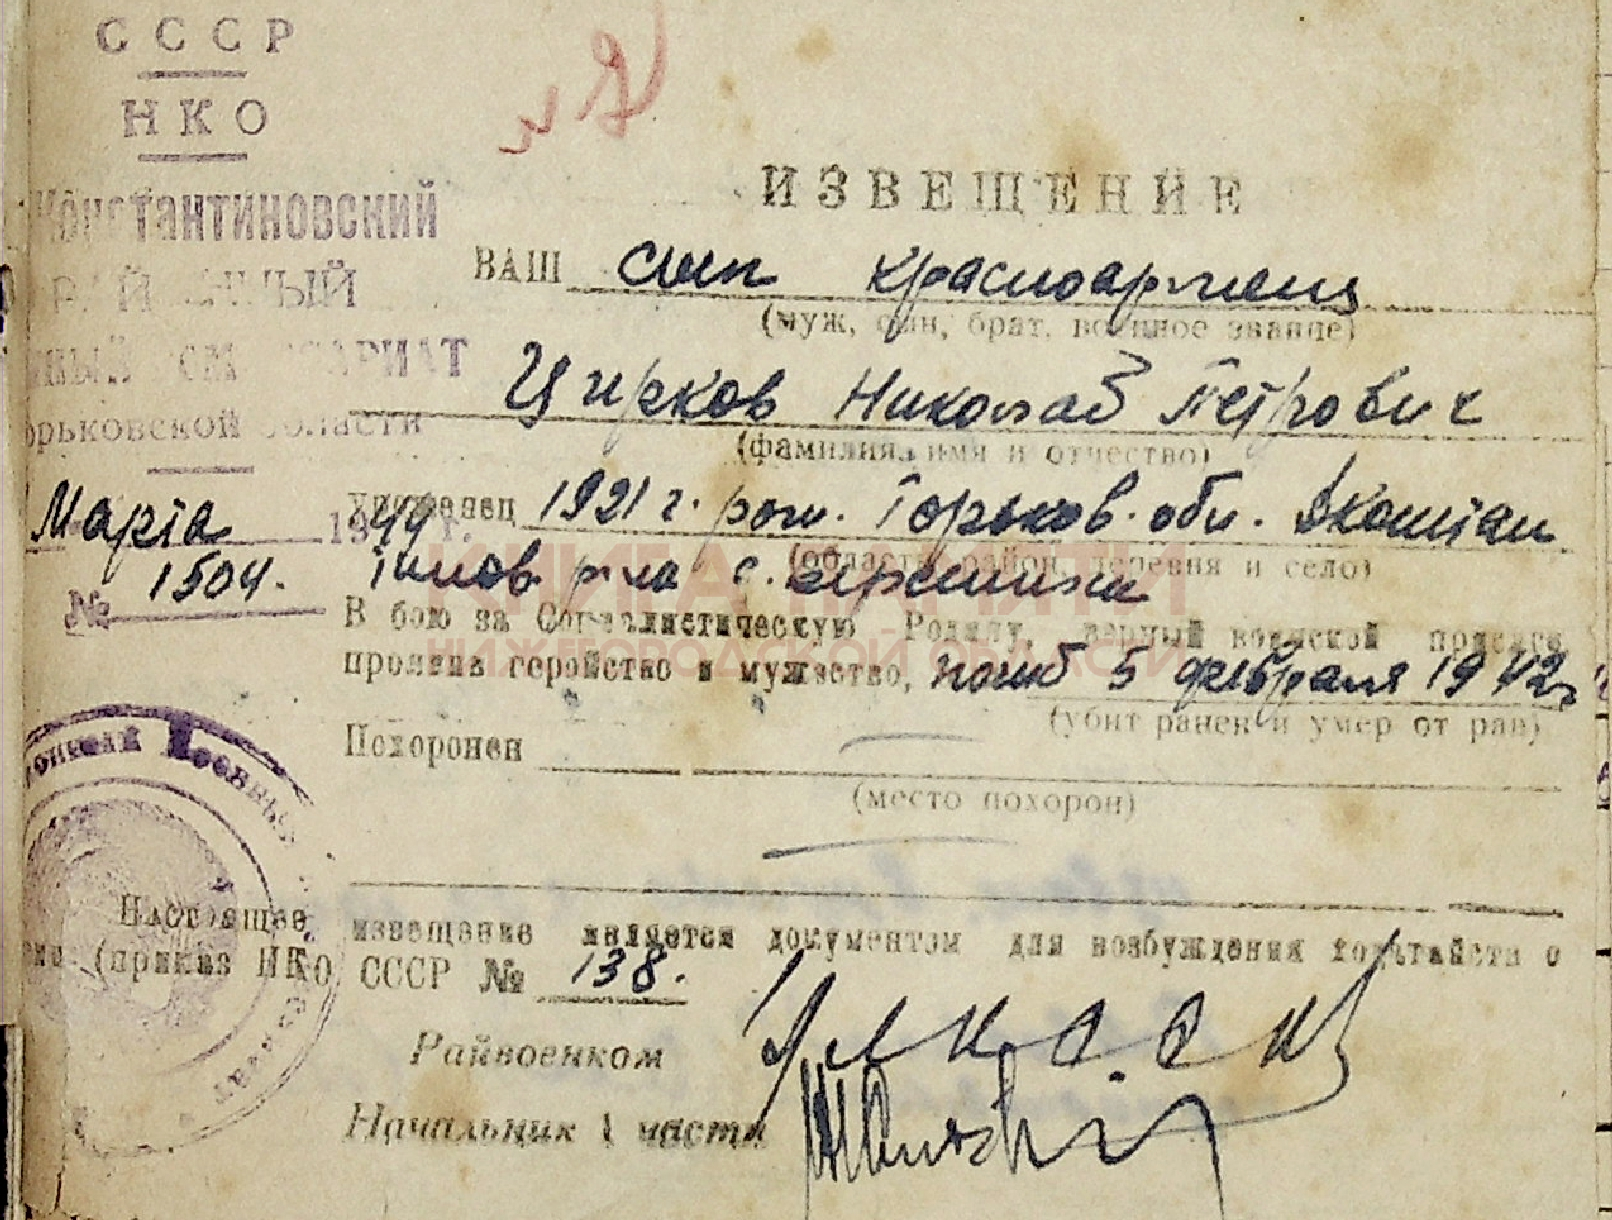 СССР
НКО
Константиновский
РАЙ
АРИАТ
орьковской области
Марта 1944 г.
№ 1504.
ИЗВЕЩЕНИЕ
ВАШ сын красноармеец
(муж, сын, брат, военное звание)
Цирков Николай Петрович
(фамилия, имя и отчество)
Уроженец 1921 г. рож. Горьков. обл. Дконстан
(область, район, деревня и село)
тинов р-на с.
В бою за Социалистическую Родину, верный воинской присяге
проявив геройство и мужество, погиб 5 февраля 1942 г
(убит ранен и умер от ран)
Похоронен
(место похорон)
Настоящее извещение является документом для возбуждения ходатайств о
(приказ НКО СССР № 138.
Райвоенком
Начальник 1 части
КНИГА ПАМЯТИ
НИЖЕГОРОДСКОЙ ОБЛАСТИ